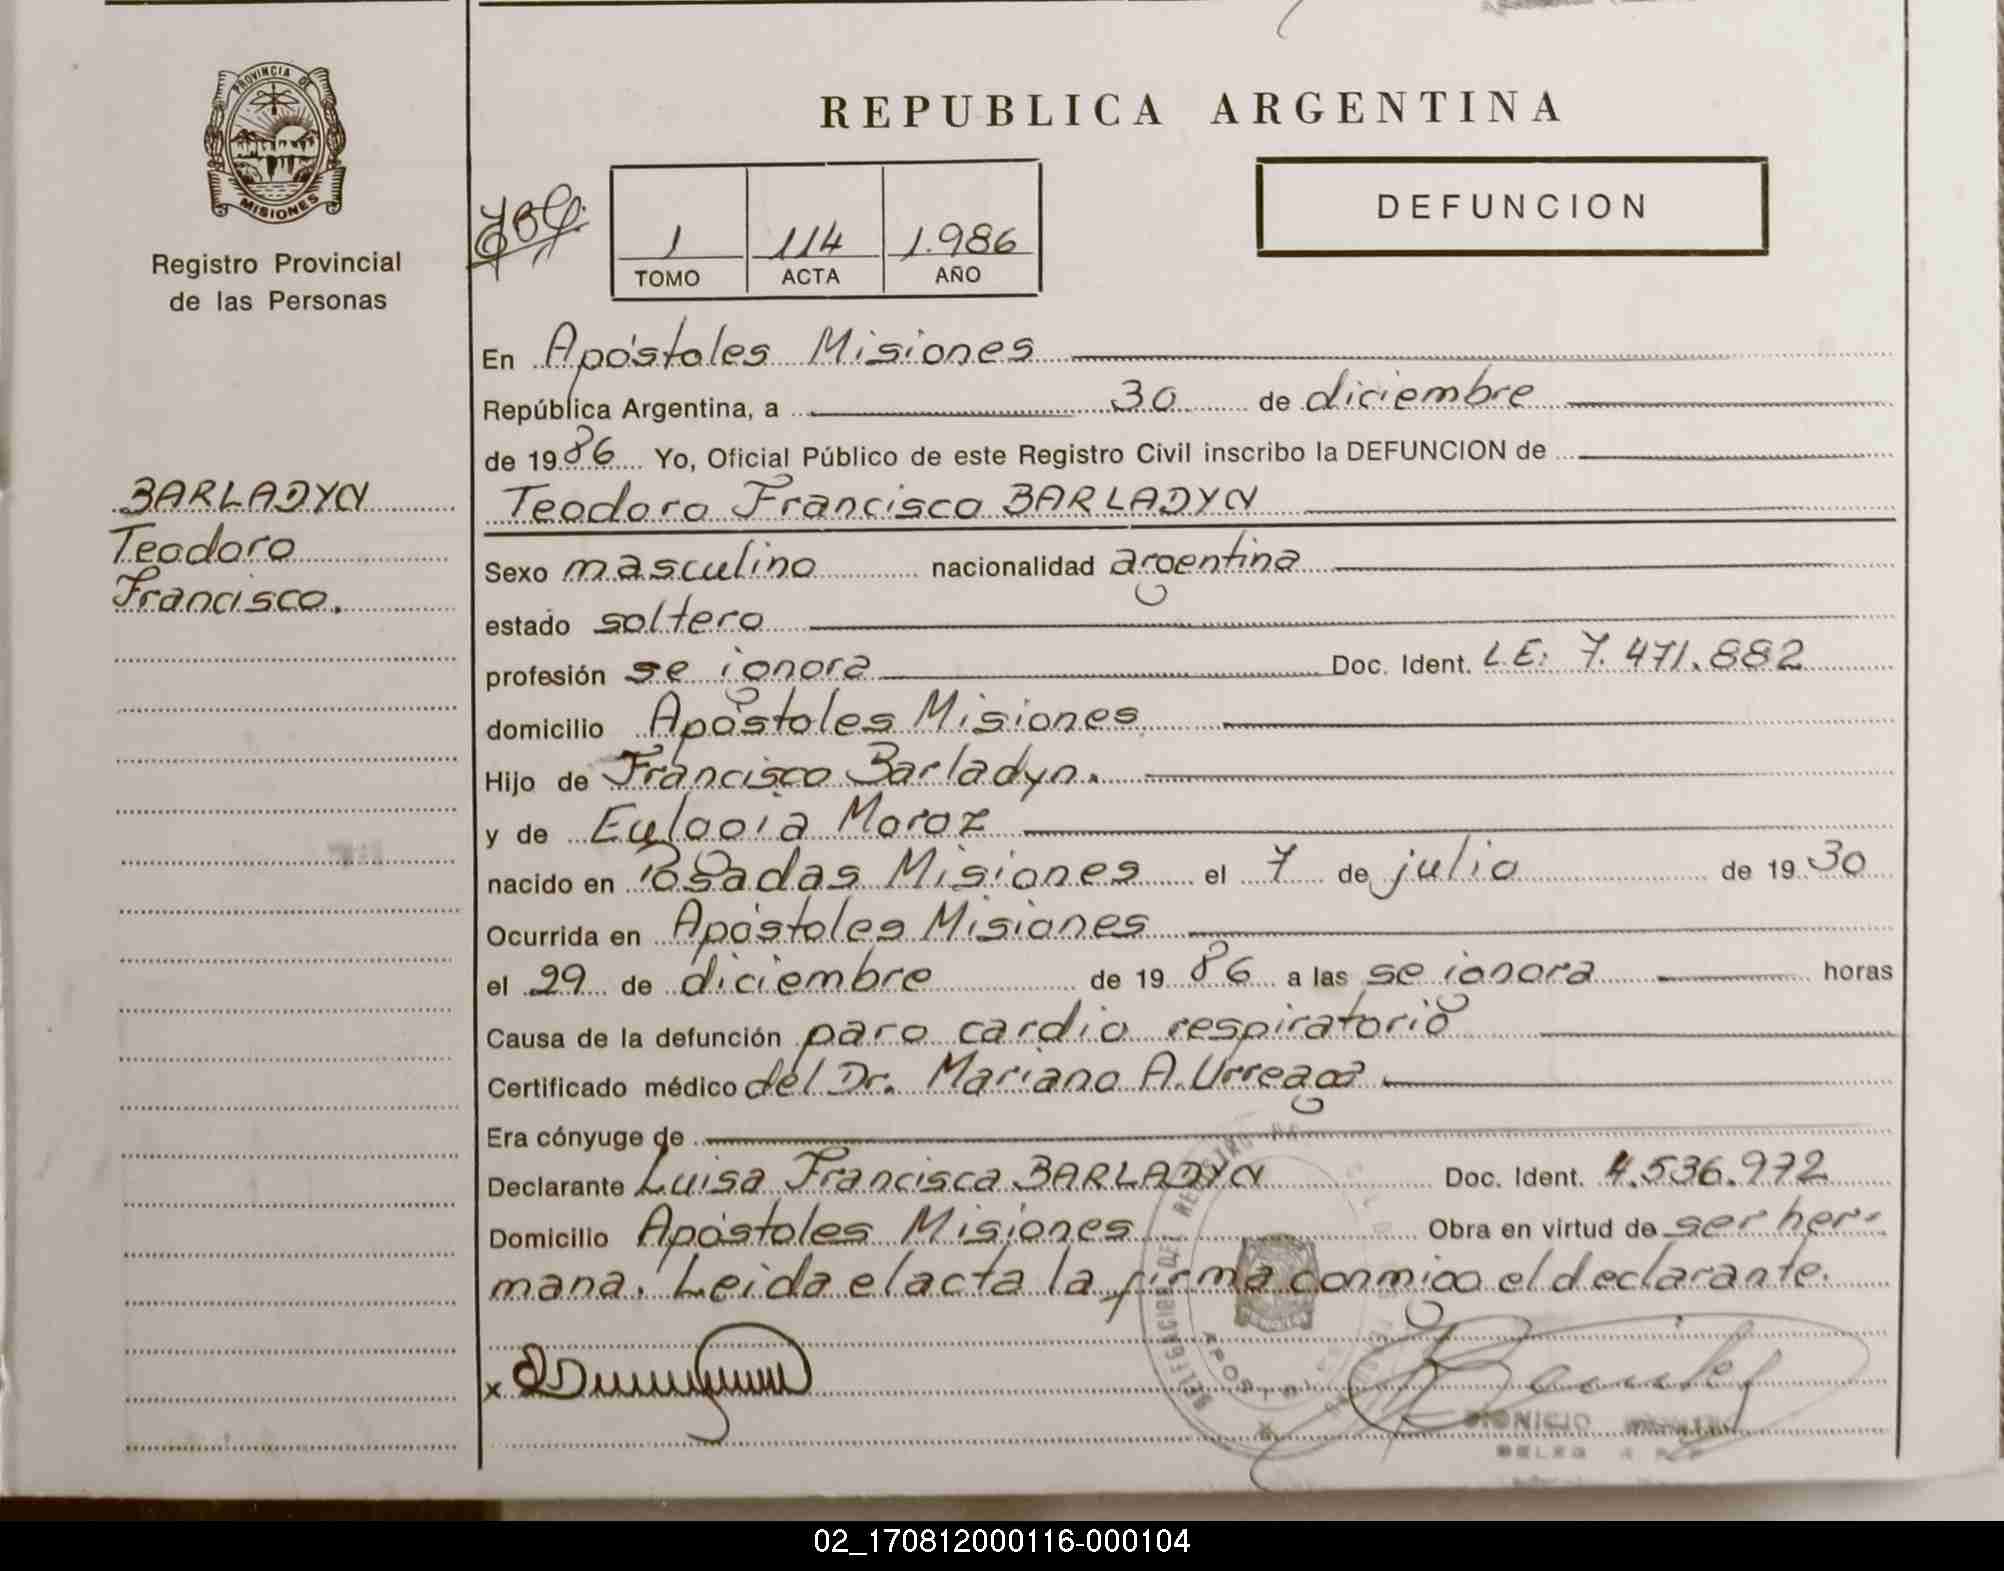 REPUBLICA ARGENTINA
PROVINCIA DE
MISIONES
Registro Provincial
de las Personas
1 114 1.986
TOMO ACTA AÑO
DEFUNCION
BARLADYN
Teodoro
Francisco.
En Apóstoles Misiones
República Argentina, a 30 de diciembre
de 1986 Yo, Oficial Público de este Registro Civil inscribo la DEFUNCION de
Teodoro Francisco BARLADYN
Sexo masculino nacionalidad argentina
estado soltero
profesión se ignora Doc. Ident. L.E: 7.471.882
domicilio Apóstoles Misiones
Hijo de Francisco Barladyn.
y de Eulogia Moroz
nacido en Posadas Misiones el 7 de julio de 1930
Ocurrida en Apóstoles Misiones
el 29 de diciembre de 1986 a las se ignora horas
Causa de la defunción paro cardio respiratorio
Certificado médico del Dr. Mariano A. Urreaga
Era cónyuge de
Declarante Luisa Francisca BARLADYN Doc. Ident. 4.536.972
Domicilio Apóstoles Misiones Obra en virtud de ser her-
mana. Leida el acta la firma conmigo el declarante.
x
DIONICIO
02_170812000116-000104